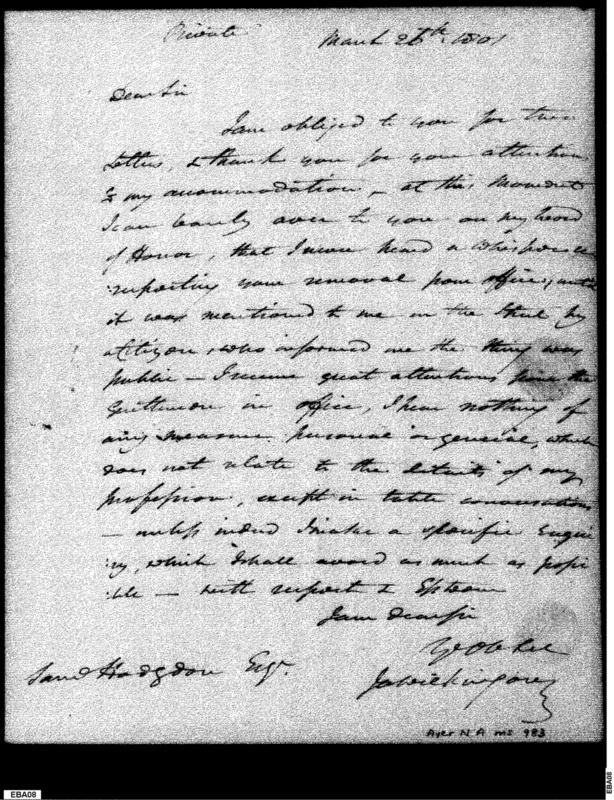 Private
March 26th 1801
Dear Sir
I am obliged to you for two
Letters, & thank you for your attention
to my accommodation, - at this Moment
I can barely aver to you on my word
of Honor, that I never heard a whisper
respecting your removal from office, until
it was mentioned to me in the Street by
a Citizen, who informed me the thing was
public - I receive great attentions from the
Gentlemen in office, I hear nothing of
any measure personal or general, which
does not relate to the details of my
profession, except in table conversations
- unless indeed I make a specific Enqui
:ry, which I shall avoid as much as possi
:ble - with respect & Esteem
I am dear Sir
Ye Ob Set
Ja Wilkinson
Saml Hodgdon Esqr.
Ayer N.A. ms 983
EBA08
EBA08